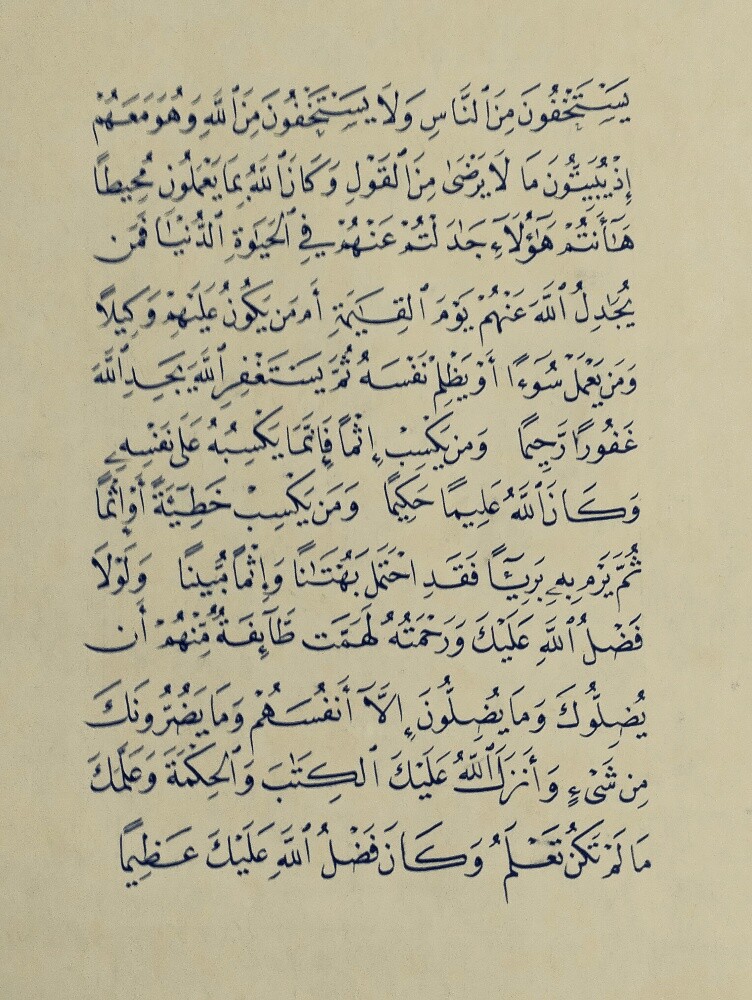 يَسْتَخْفُونَ مِنَ ٱلنَّاسِ وَلَا يَسْتَخْفُونَ مِنَ ٱللَّهِ وَهُوَ مَعَهُمْ
إِذْ يُبَيِّتُونَ مَا لَا يَرْضَىٰ مِنَ ٱلْقَوْلِ وَكَانَ ٱللَّهُ بِمَا يَعْمَلُونَ مُحِيطًا
هَٰٓأَنتُمْ هَٰٓؤُلَآءِ جَٰدَلْتُمْ عَنْهُمْ فِى ٱلْحَيَوٰةِ ٱلدُّنْيَا فَمَن
يُجَٰدِلُ ٱللَّهَ عَنْهُمْ يَوْمَ ٱلْقِيَٰمَةِ أَم مَّن يَكُونُ عَلَيْهِمْ وَكِيلًا
وَمَن يَعْمَلْ سُوٓءًا أَوْ يَظْلِمْ نَفْسَهُۥ ثُمَّ يَسْتَغْفِرِ ٱللَّهَ يَجِدِ ٱللَّهَ
غَفُورًا رَّحِيمًا وَمَن يَكْسِبْ إِثْمًا فَإِنَّمَا يَكْسِبُهُۥ عَلَىٰ نَفْسِهِۦ
وَكَانَ ٱللَّهُ عَلِيمًا حَكِيمًا وَمَن يَكْسِبْ خَطِيٓـَٔةً أَوْ إِثْمًا
ثُمَّ يَرْمِ بِهِۦ بَرِيٓـًٔا فَقَدِ ٱحْتَمَلَ بُهْتَٰنًا وَإِثْمًا مُّبِينًا وَلَوْلَا
فَضْلُ ٱللَّهِ عَلَيْكَ وَرَحْمَتُهُۥ لَهَمَّت طَّآئِفَةٌ مِّنْهُمْ أَن
يُضِلُّوكَ وَمَا يُضِلُّونَ إِلَّآ أَنفُسَهُمْ وَمَا يَضُرُّونَكَ
مِن شَىْءٍ وَأَنزَلَ ٱللَّهُ عَلَيْكَ ٱلْكِتَٰبَ وَٱلْحِكْمَةَ وَعَلَّمَكَ
مَا لَمْ تَكُن تَعْلَمُ وَكَانَ فَضْلُ ٱللَّهِ عَلَيْكَ عَظِيمًا